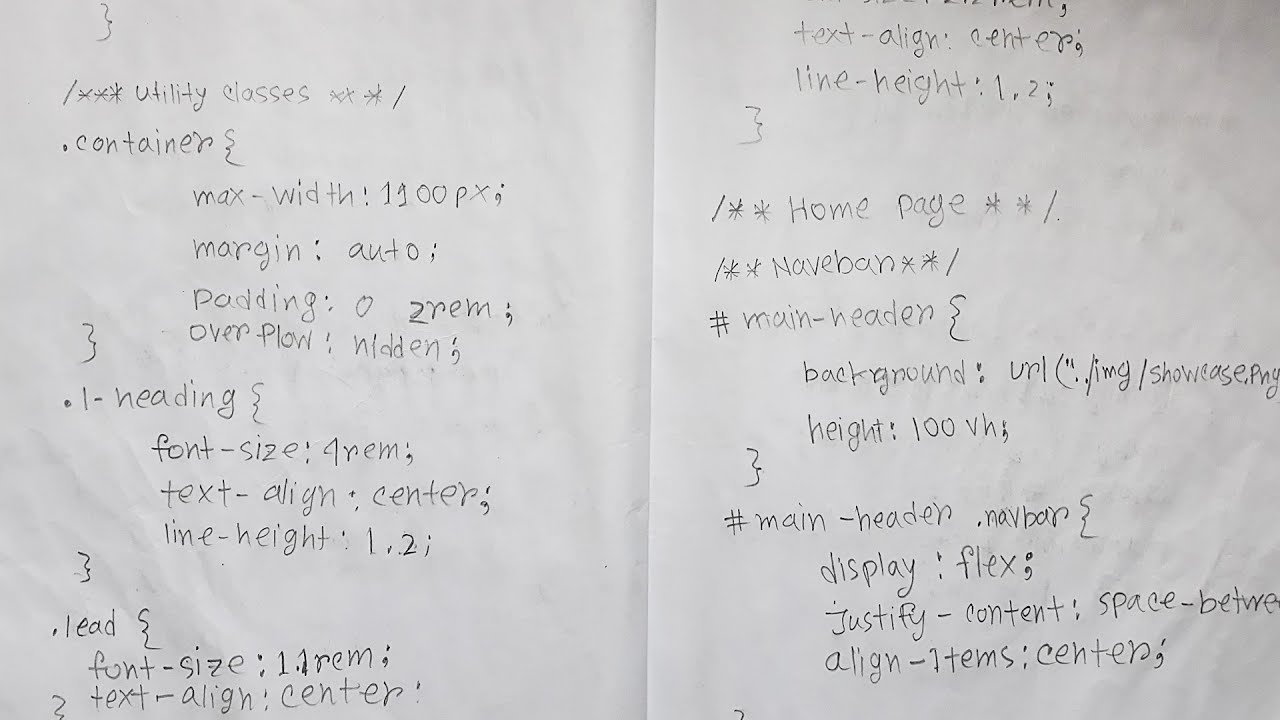 }
/*** Utility classes ***/
.container{
max-width: 1100px;
margin: auto;
padding: 0 2rem;
overflow: hidden;
}
.l-heading{
font-size: 4rem;
text-align: center;
line-height: 1.2;
}
.lead {
font-size: 1.1rem;
text-align: center:
}
text-align: center;
line-height: 1.2;
}
/** Home page **/.
/** Naveban**/
# main-header {
background: url("../img/showcase.png
height: 100vh;
}
#main-header .navbar{
display: flex;
justify-content: space-betwee
align-Items: center;
}